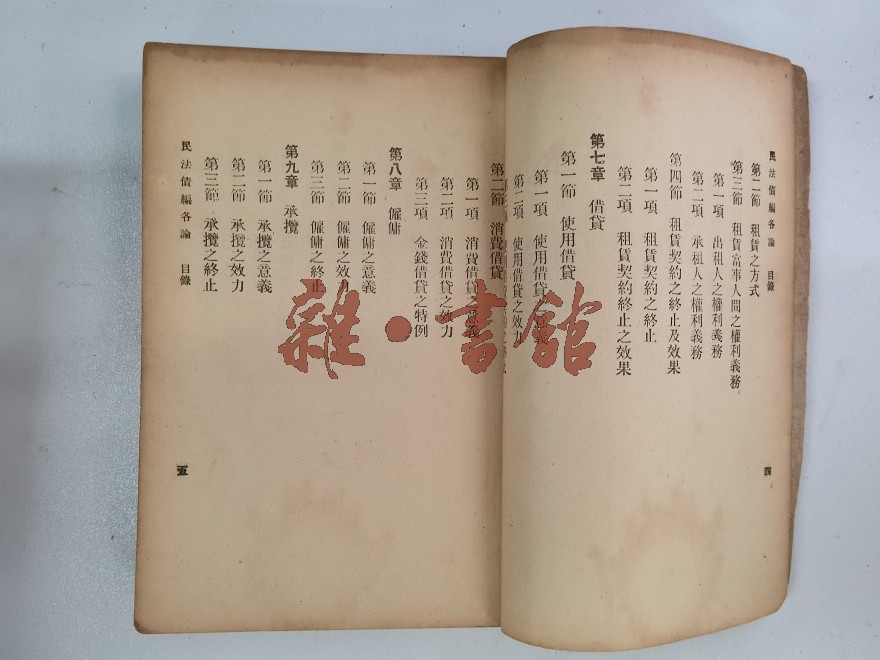 民法債編各論　目錄
第二節　租賃之方式
第三節　租賃當事人間之權利義務
第一項　出租人之權利義務
第二項　承租人之權利義務
第四節　租賃契約之終止及效果
第一項　租賃契約之終止
第二項　租賃契約終止之效果
第七章　借貸
第一節　使用借貸
第一項　使用借貸之意義
第二項　使用借貸之效力
四
第二節　消費借貸
第一項　消費借貸之意義
第二項　消費借貸之效力
第三項　金錢借貸之特例
第八章　僱傭
第一節　僱傭之意義
第二節　僱傭之效力
第三節　僱傭之終止
第九章　承攬
第一節　承攬之意義
第二節　承攬之效力
第三節　承攬之終止
民法債編各論　目錄
五
雜·書館